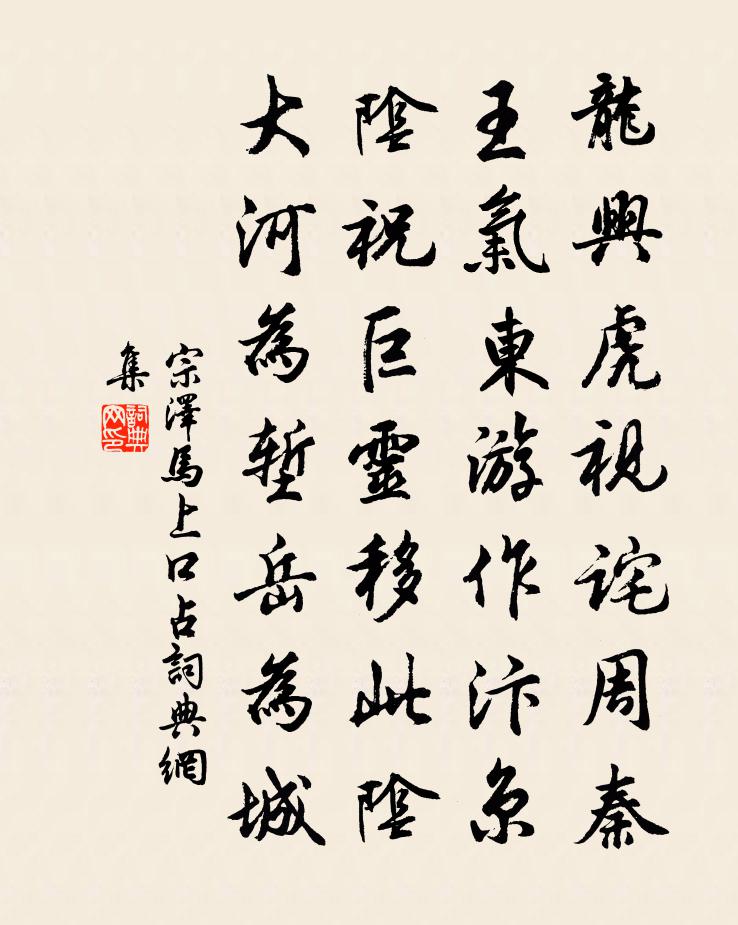 龍興虎視詫周秦
王氣東游作汴京
陰祝巨靈移此陰
大河為塹岳為城
宗澤馬上口占詞典網
集
詞典網印